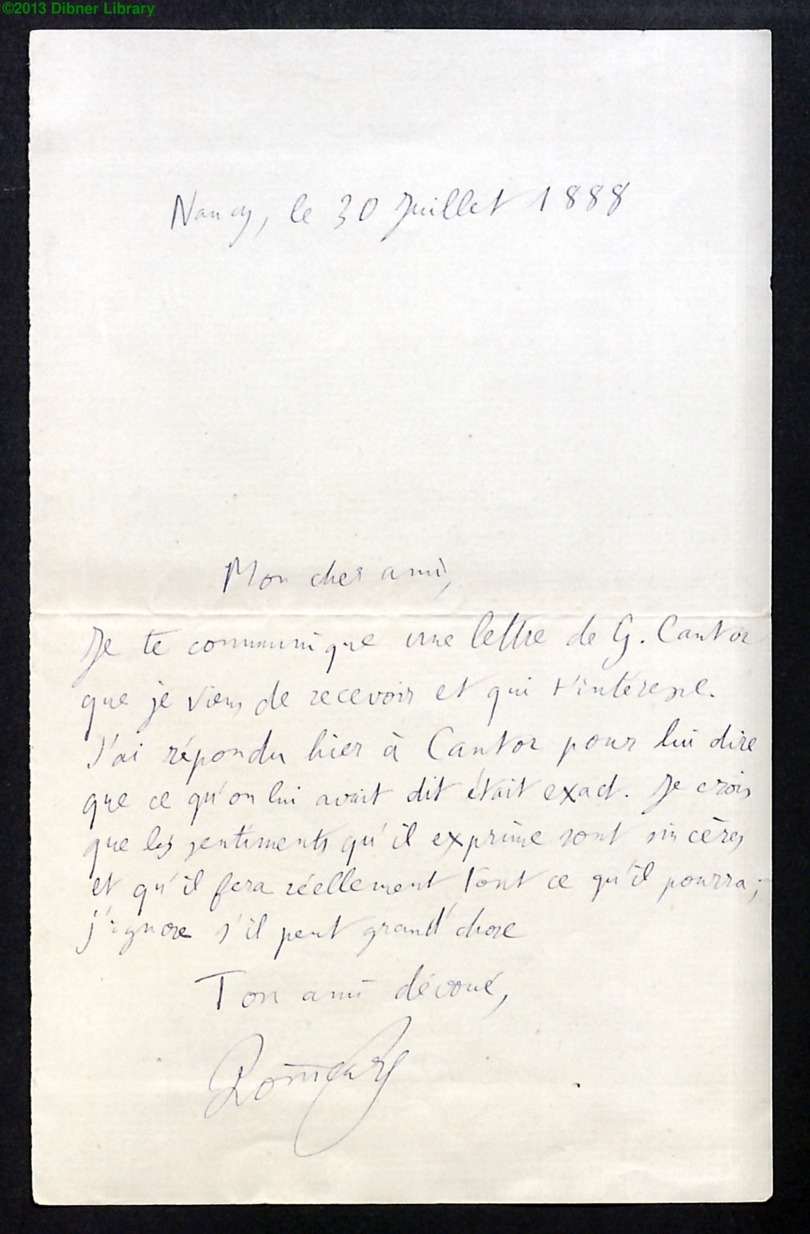 ©2013 Dibner Library
Nancy, le 30 Juillet 1888
Mon cher ami,
Je te communique une lettre de G. Cantor
que je viens de recevoir et qui t'intéresse.
J'ai répondu hier à Cantor pour lui dire
que ce qu'on lui avait dit était exact. Je crois
que les sentiments qu'il exprime sont sincères
et qu'il fera réellement tout ce qu'il pourra;
j'ignore s'il peut grand'chose
Ton ami dévoué,
Poincaré